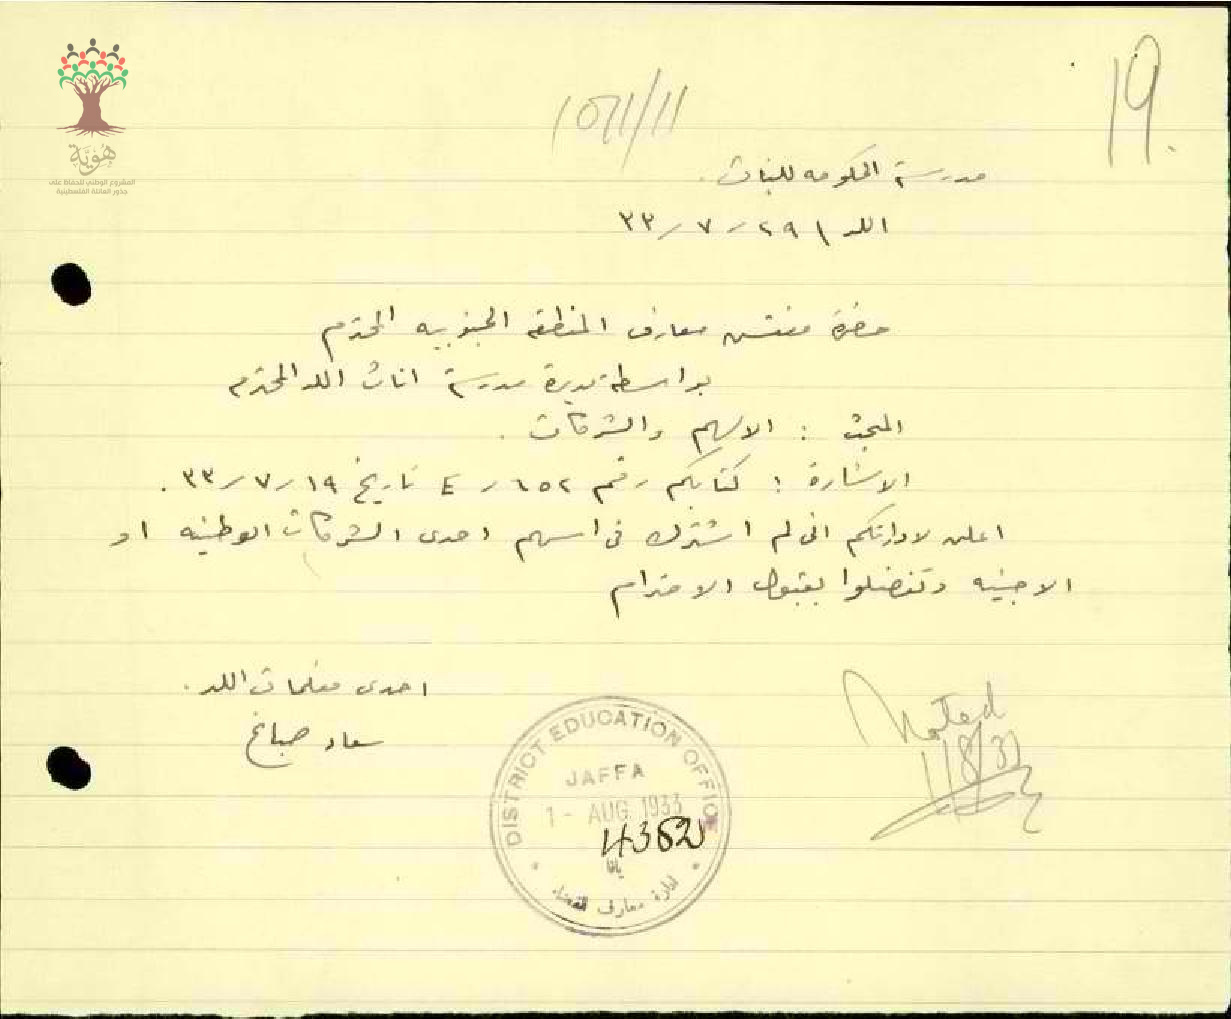 19.
1071/11
هُوِيَّة
المشروع الوطني للحفاظ على
جذور العائلة الفلسطينية
مدرسة الحكومه للبنات.
اللد ٢٩ / ٧ / ٣٣
حضرة مفتش معارف المنطقه الجنوبيه المحترم
بواسطة مديرة مدرسة اناث اللد المحترم
المبحث : الاسهم والشركات .
الاشارة : كتابكم رقم ٦٥٢ / ٤ تاريخ ١٩ / ٧ / ٣٣ .
اعلن لادارتكم انى لم اشترك فى اسهم احدى الشركات الوطنيه او
الاجنبيه وتفضلوا بقبول الاحترام
احدى معلمات اللد.
سعاد صباغ
Noted
1/8/33
DISTRICT EDUCATION OFFICE
JAFFA
1 - AUG 1933
4362
يافا
ادارة معارف القضاء